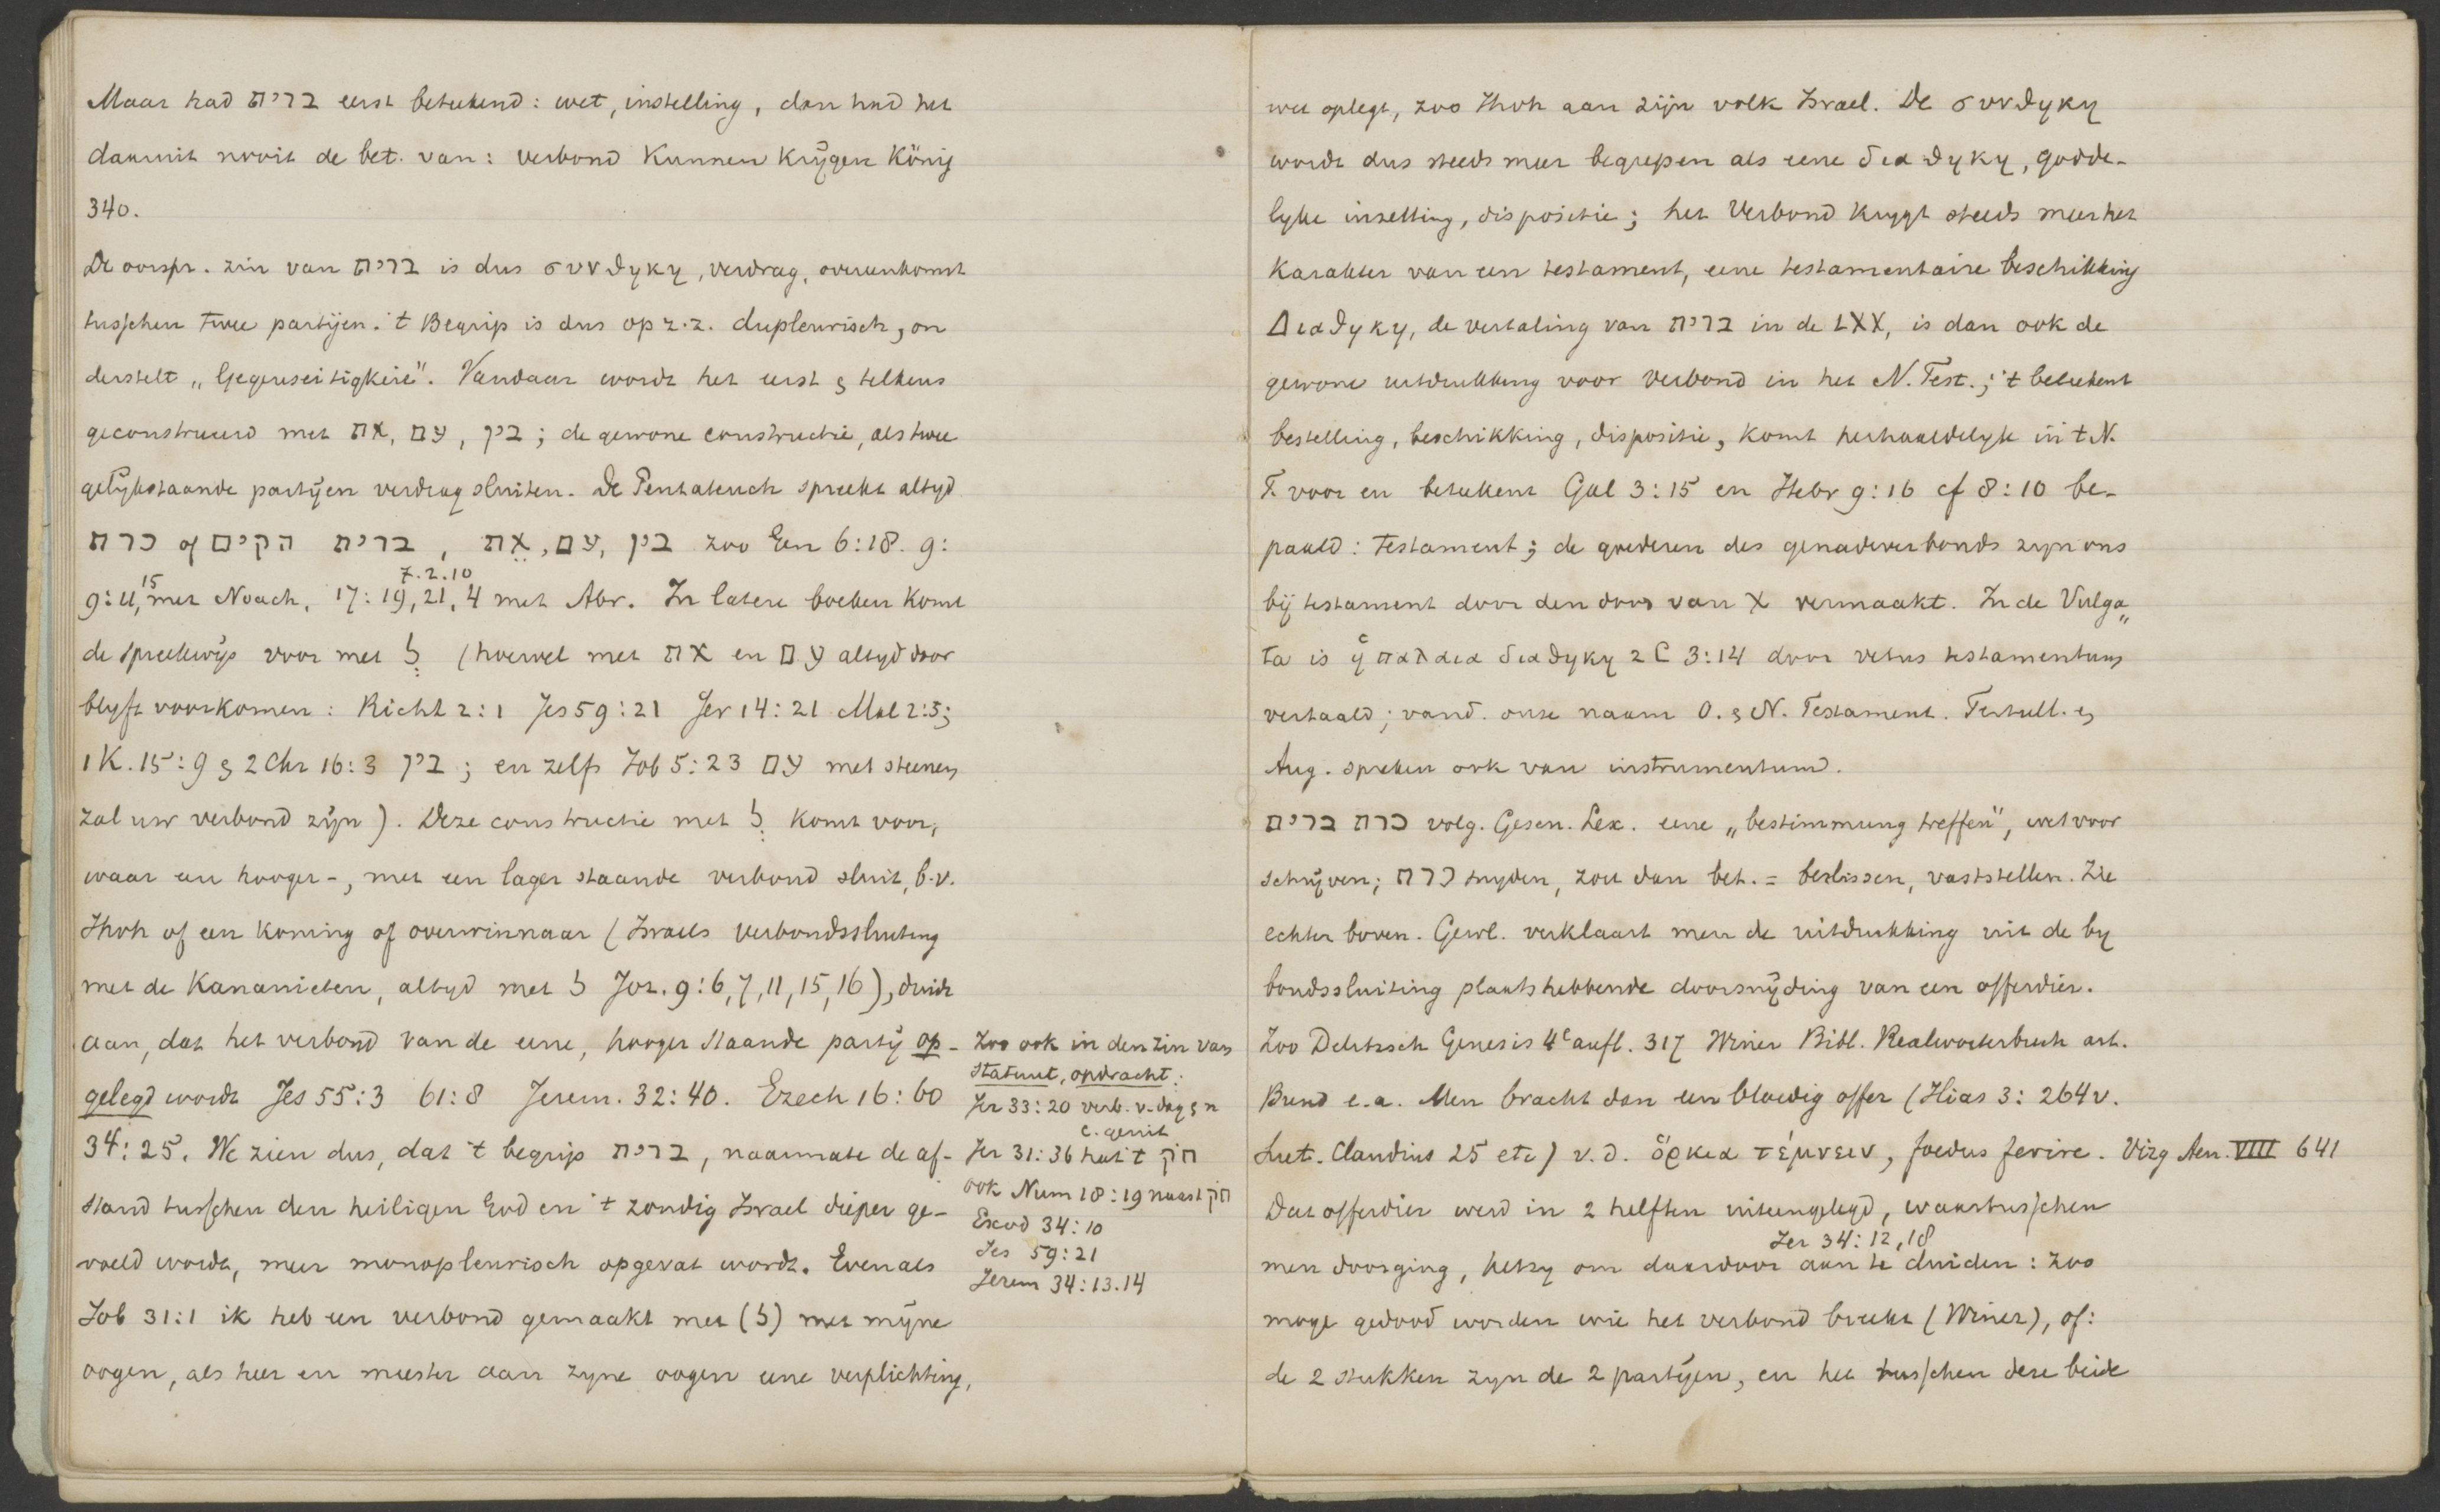 Maar had ברית eerst beteekend: wet, instelling, dan had het
daaruit nooit de bet. van: verbond kunnen krijgen König
340.
De oorspr. zin van ברית is dus συνθηκη, verdrag, overeenkomst
tusschen twee partijen. 't Begrip is dus op z.z. dupleurisch, on
derstelt „Gegenseitigkeit". Vandaar wordt het eerst & telkens
geconstrueerd met את, עם, בין; de gewone constructie, als twee
gelijkstaande partijen verdrag sluiten. De Pentateuch spreekt altyd
כרת of הקים ברית, את, עם, בין zoo Gen 6:18. 9:
9:11, 15 met Noach, 17:19, 21, 4 7.2.10 met Abr. In latere boeken komt
de spreekwijs voor met ל (hoewel met את en עם altyd door
blyft voorkomen: Richt 2:1 Jes 59:21 Jer 14:21 Mal 2:5;
1 K. 15:9 & 2 Chr 16:3 בין; en zelfs Job 5:23 עם met steenen
zal uw verbond zijn). Deze constructie met ל komt voor,
waar een hooger-, met een lager staande verbond sluit, b.v.
Jhvh of een koning of overwinnaar (Israels verbondssluiting
met de Kananieten, altyd met ל Joz. 9:6, 7, 11, 15, 16), duidt
aan, dat het verbond van de eene, hooger staande partij op-
gelegd wordt Jes 55:3 61:8 Jerem. 32:40. Ezech 16:60
34:25. We zien dus, dat 't begrip ברית, naarmate de af-
stand tusschen den heiligen God en 't zondig Israel dieper ge-
voeld wordt, meer monopleurisch opgevat wordt. Evenals
Job 31:1 ik heb een verbond gemaakt met (ל) met mijne
oogen, als heer en meester aan zyne oogen eene verplichting,
Zoo ook in den zin van
statuut, opdracht:
Jer 33:20 verb. v. dag & n
c. genit
Jer 31:36 heet 't חק
ook Num 18:19 naast חק
Exod 34:10
Jes 59:21
Jerem 34:13.14
wet oplegt, zoo Jhvh aan zijn volk Israel. De συνθηκη
wordt dus steeds meer begrepen als eene διαθηκη, godde-
lyke inzetting, dispositie; het Verbond krygt steeds meer het
karakter van een testament, eene testamentaire beschikking
Διαθηκη, de vertaling van ברית in de LXX, is dan ook de
gewone uitdrukking voor Verbond in het N. Test.; 't beteekent
bestelling, beschikking, dispositie, komt herhaaldelyk in 't N.
T. voor en beteekent Gal 3:15 en Hebr 9:16 cf 8:10 be-
paald: testament; de goederen des genadeverbonds zyn ons
bij testament door den dood van X vermaakt. In de Vulga„
ta is ἡ παλαια διαθηκη 2 C 3:14 door vetus testamentum
vertaald; vand. onze naam O. & N. Testament. Tertull. &
Aug. spreken ook van instrumentum.
כרת ברית volg. Gesen. Lex. eene „bestimmung treffen", wet voor
schrijven; כרת snyden, zou dan bet. = beslissen, vaststellen. Zie
echter boven. Gewl. verklaart men de uitdrukking uit de by
bondssluiting plaatshebbende doorsnijding van een offerdier.
Zoo Delitzsch Genesis 4e aufl. 317 Winer Bibl. Realworterbuch art.
Bund e.a. Men bracht dan een bloedig offer (Ilias 3:264 v.
Suet. Claudius 25 etc) v.d. ὅρκια τέμνειν, foedus ferire. Virg Aen. VIII 641
Dat offerdier werd in 2 helften uiteengelegd, waartusschen
men doorging, Jer 34:12, 18 hetzy om daardoor aan te duiden: zoo
moge gedood worden wie het verbond breekt (Winer), of:
de 2 stukken zyn de 2 partijen, en het tusschen deze beide